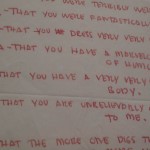 - THAT YOU WERE TERRIBLY WE
- THAT YOU WERE FANTASTICALL
- THAT YOU DRESS VERY VERY
- THAT YOU HAVE A
OF HUMO
THAT YOU HAVE A VERY VERY
BODY.
THAT YOU ARE UNBELIEVABLY
TO ME.
THAT THE MORE ONE DIGS T